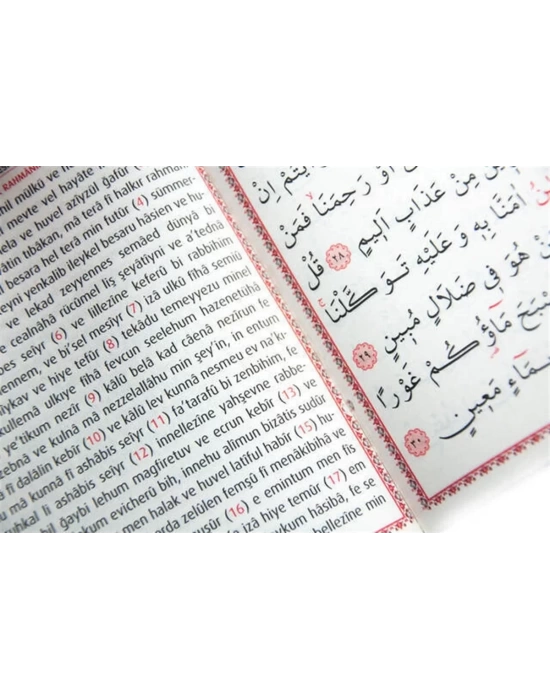 RAHMAN
mil mülkü ve hüve
meyte vel hayate
ve huvel azîyzül gafûr (2)
tıbâkan, mâ terâ fi halkır rahman
besara hel terâ min futûr (4) sümmer-
yenkalib ileykel besaru hâsien ve hu-
ve lekad zeyyennes semâed dünyâ bi
cealnâhâ rucûmel liş şeyâtîyni ve a'tednâ
seiyr (6) ve lillezîne keferû bi rabbihim
ennem, ve bi'sel mesîyr (7) izâ ulkû fîhâ semiû
ve hiye tefûr (8) tekâdu temeyyezu minel
kullemâ ulkıye fîhâ fevcun seelehum hazenetühâ
e'tikum nezîr (9) kâlû belâ kad câenâ nezîrun fe
zebnâ ve kulnâ mâ nezzelallâhu min şey'in, in entum
â fî dalâlin kebîr (10) ve kâlû lev kunnâ nesmeu ev na'k-
mâ kunnâ fî ashâbis seiyr (11) fa'tarafû bi zenbihim, fe
uhkal li ashâbis seiyr (12) innellezîne yahşevne rabbe-
bil ğaybi lehum magfiretuv ve ecrun kebîr (13) ve
kum evicherû bih, innehu alîmun bizâtis sudûr
men halak ve huvel latîful habîr (15) hu-
arda zelûlen femşû fî menâkibihâ ve
nuşûr (16) e emintum men fis
izâ hiye temûr (17) em
aykum hâsibâ, fe se
bellezîne min
اِنْ
اَوْ رَحِمَنَا فَمَنْ
مِنْ عَذَابٍ اَلِيمٍ ﴿٢٨﴾ قُلْ
اٰمَنَّا بِهِ وَعَلَيْهِ تَوَكَّلْنَا
هُوَ فِي ضَلَالٍ مُبِينٍ ﴿٢٩﴾
مَاؤُ۬كُمْ غَوْرًا
مَعِينٍ ﴿٣٠﴾